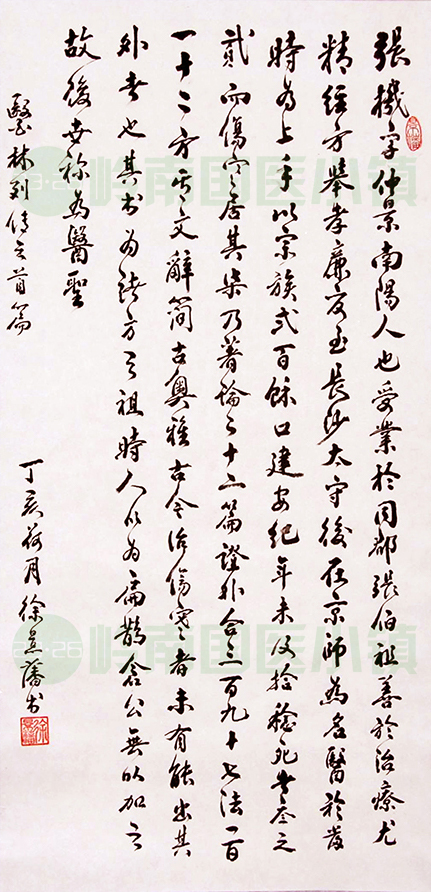 張機字仲景南陽人也受業於同郡張伯祖善於治療尤
精經方舉孝廉官至長沙太守後在京師為名醫於當
時為上手以宗族二百餘口建安紀年未及拾稔死者叁之
貳而傷寒居其柒乃著論二十二篇證外合三百九十七法一百
一十二方其文辭簡古奧雅古今治傷寒者未有能出其
外者也其書為諸方之祖時人以為扁鵲倉公無以加之
故後世称為醫聖
醫林列傳之首篇
丁亥荷月徐景藩书
岭南国医小镇
岭南国医小镇